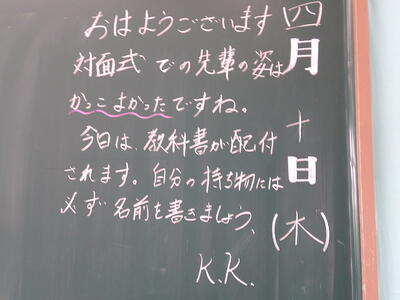 四月十日(木)
おはようございます
対面式での先輩の姿は
かっこよかったですね。
今日は、教科書が配付
されます。自分の持ち物には
必ず名前を書きましょう、
K.K.